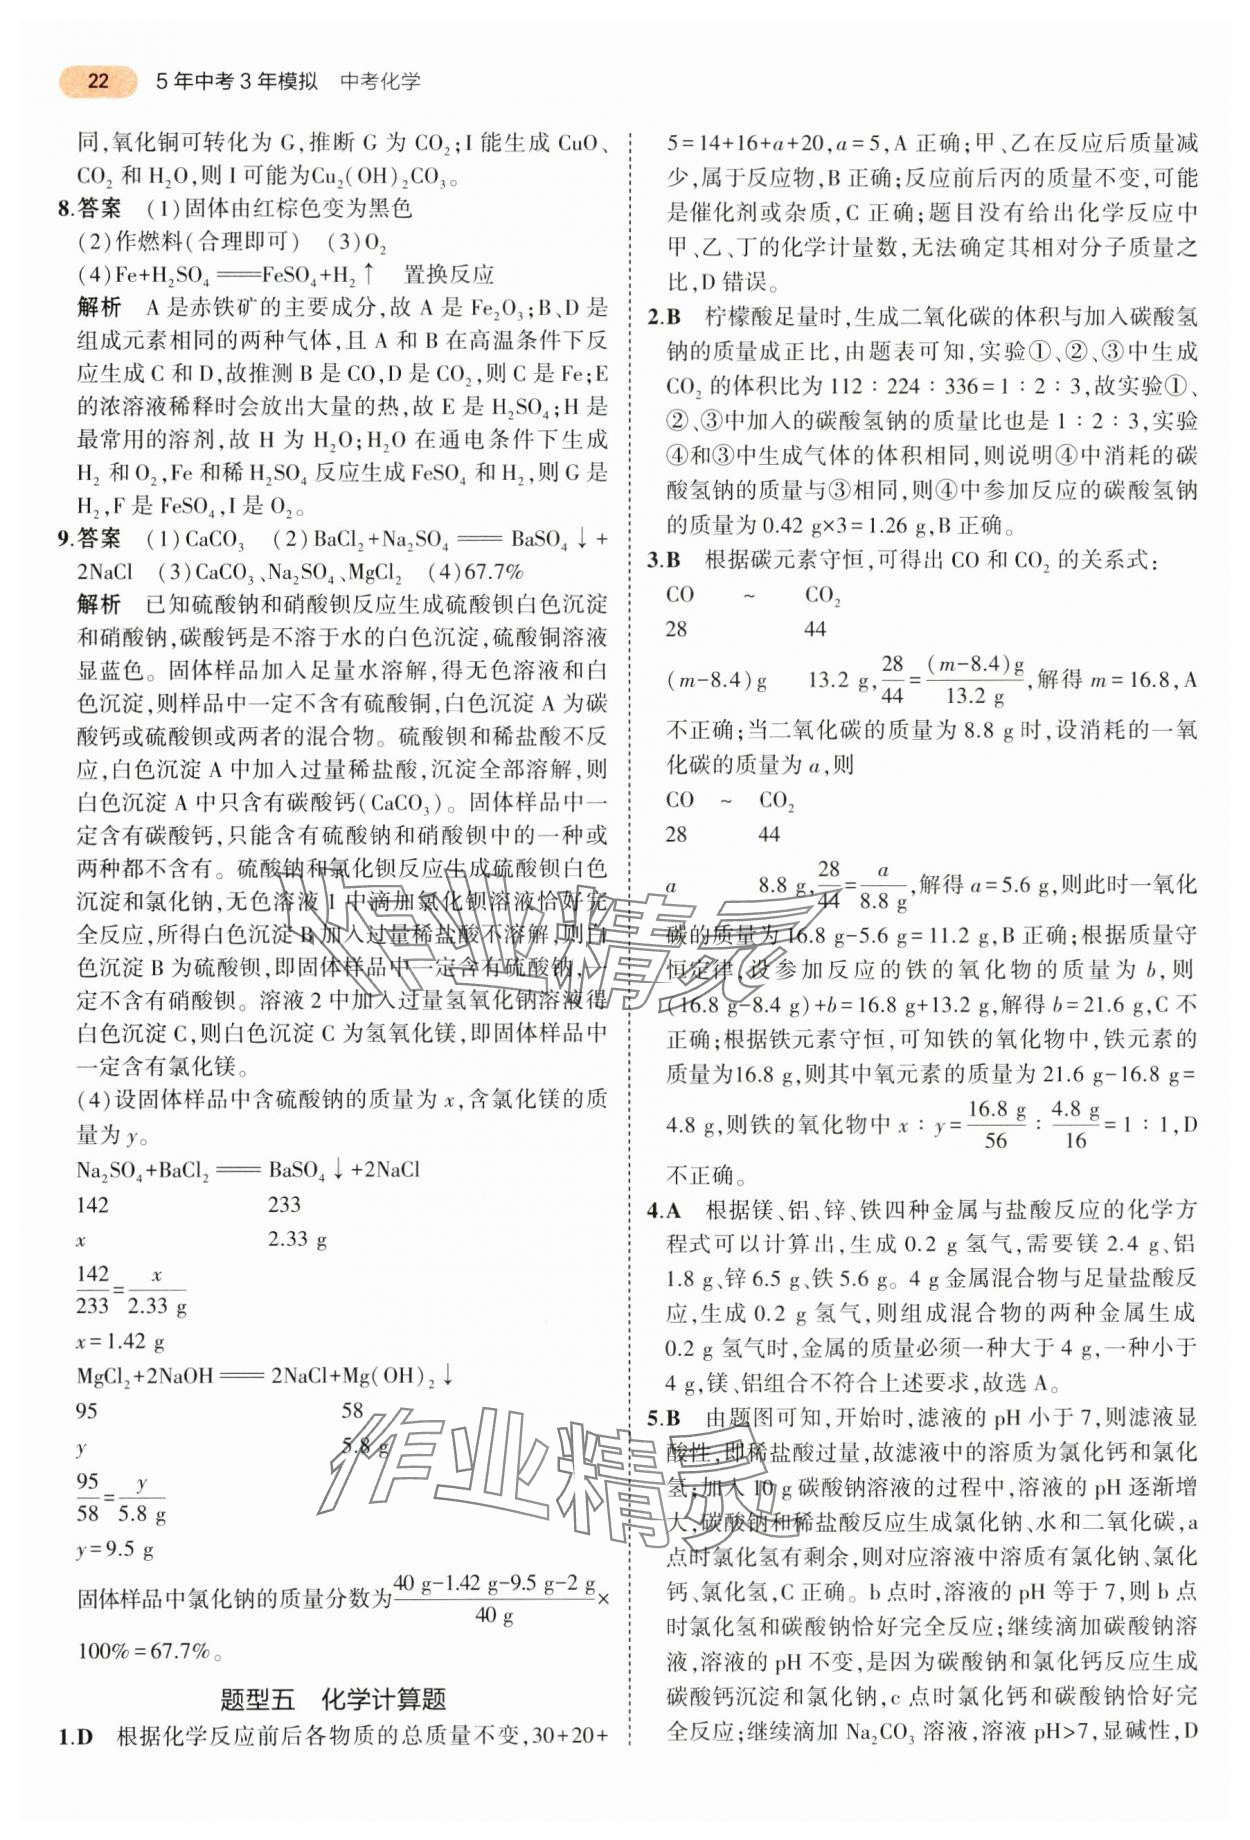 22 5年中考3年模拟 中考化学
同,氧化铜可转化为 G,推断 G 为 CO₂;I 能生成 CuO、
CO₂ 和 H₂O,则 I 可能为Cu₂(OH)₂CO₃。
8.答案 (1)固体由红棕色变为黑色
(2)作燃料(合理即可) (3)O₂
(4)Fe+H₂SO₄══FeSO₄+H₂↑ 置换反应
解析 A 是赤铁矿的主要成分,故 A 是 Fe₂O₃;B、D 是
组成元素相同的两种气体,且 A 和 B 在高温条件下反
应生成 C 和 D,故推测 B 是 CO,D 是 CO₂,则 C 是 Fe;E
的浓溶液稀释时会放出大量的热,故 E 是 H₂SO₄;H 是
最常用的溶剂,故 H 为 H₂O;H₂O 在通电条件下生成
H₂ 和 O₂,Fe 和稀 H₂SO₄ 反应生成 FeSO₄ 和 H₂,则 G 是
H₂,F 是 FeSO₄,I 是 O₂。
9.答案 (1)CaCO₃ (2)BaCl₂+Na₂SO₄══BaSO₄↓+
2NaCl (3)CaCO₃、Na₂SO₄、MgCl₂ (4)67.7%
解析 已知硫酸钠和硝酸钡反应生成硫酸钡白色沉淀
和硝酸钠,碳酸钙是不溶于水的白色沉淀,硫酸铜溶液
显蓝色。固体样品加入足量水溶解,得无色溶液和白
色沉淀,则样品中一定不含有硫酸铜,白色沉淀 A 为碳
酸钙或硫酸钡或两者的混合物。硫酸钡和稀盐酸不反
应,白色沉淀 A 中加入过量稀盐酸,沉淀全部溶解,则
白色沉淀 A 中只含有碳酸钙(CaCO₃)。固体样品中一
定含有碳酸钙,只能含有硫酸钠和硝酸钡中的一种或
两种都不含有。硫酸钠和氯化钡反应生成硫酸钡白色
沉淀和氯化钠,无色溶液 1 中滴加氯化钡溶液恰好完
全反应,所得白色沉淀 B 加入过量稀盐酸不溶解,则白
色沉淀 B 为硫酸钡,即固体样品中一定含有硫酸钠,一
定不含有硝酸钡。溶液 2 中加入过量氢氧化钠溶液得
白色沉淀 C,则白色沉淀 C 为氢氧化镁,即固体样品中
一定含有氯化镁。
(4)设固体样品中含硫酸钠的质量为 x,含氯化镁的质
量为 y。
Na₂SO₄+BaCl₂══BaSO₄↓+2NaCl
142 233
x 2.33 g
142/233=x/2.33 g
x=1.42 g
MgCl₂+2NaOH══2NaCl+Mg(OH)₂↓
95 58
y 5.8 g
95/58=y/5.8 g
y=9.5 g
固体样品中氯化钠的质量分数为(40 g-1.42 g-9.5 g-2 g)/40 g×
100%=67.7%。
题型五 化学计算题
1.D 根据化学反应前后各物质的总质量不变,30+20+
5=14+16+a+20,a=5,A 正确;甲、乙在反应后质量减
少,属于反应物,B 正确;反应前后丙的质量不变,可能
是催化剂或杂质,C 正确;题目没有给出化学反应中
甲、乙、丁的化学计量数,无法确定其相对分子质量之
比,D 错误。
2.B 柠檬酸足量时,生成二氧化碳的体积与加入碳酸氢
钠的质量成正比,由题表可知,实验①、②、③中生成
CO₂ 的体积比为 112∶224∶336=1∶2∶3,故实验①、
②、③中加入的碳酸氢钠的质量比也是 1∶2∶3,实验
④和③中生成气体的体积相同,则说明④中消耗的碳
酸氢钠的质量与③相同,则④中参加反应的碳酸氢钠
的质量为 0.42 g×3=1.26 g,B 正确。
3.B 根据碳元素守恒,可得出 CO 和 CO₂ 的关系式:
CO ~ CO₂
28 44
(m-8.4)g 13.2 g,28/44=(m-8.4)g/13.2 g,解得 m=16.8,A
不正确;当二氧化碳的质量为 8.8 g 时,设消耗的一氧
化碳的质量为 a,则
CO ~ CO₂
28 44
a 8.8 g,28/44=a/8.8 g,解得 a=5.6 g,则此时一氧化
碳的质量为 16.8 g-5.6 g=11.2 g,B 正确;根据质量守
恒定律,设参加反应的铁的氧化物的质量为 b,则
(16.8 g-8.4 g)+b=16.8 g+13.2 g,解得 b=21.6 g,C 不
正确;根据铁元素守恒,可知铁的氧化物中,铁元素的
质量为16.8 g,则其中氧元素的质量为 21.6 g-16.8 g=
4.8 g,则铁的氧化物中 x∶y=16.8 g/56∶4.8 g/16=1∶1,D
不正确。
4.A 根据镁、铝、锌、铁四种金属与盐酸反应的化学方
程式可以计算出,生成 0.2 g 氢气,需要镁 2.4 g、铝
1.8 g、锌 6.5 g、铁 5.6 g。4 g 金属混合物与足量盐酸反
应,生成 0.2 g 氢气,则组成混合物的两种金属生成
0.2 g 氢气时,金属的质量必须一种大于 4 g,一种小于
4 g,镁、铝组合不符合上述要求,故选 A。
5.B 由题图可知,开始时,滤液的 pH 小于 7,则滤液显
酸性,即稀盐酸过量,故滤液中的溶质为氯化钙和氯化
氢;加入 10 g 碳酸钠溶液的过程中,溶液的 pH 逐渐增
大,碳酸钠和稀盐酸反应生成氯化钠、水和二氧化碳,a
点时氯化氢有剩余,则对应溶液中溶质有氯化钠、氯化
钙、氯化氢,C 正确。b 点时,溶液的 pH 等于 7,则 b 点
时氯化氢和碳酸钠恰好完全反应;继续滴加碳酸钠溶
液,溶液 pH 不变,是因为碳酸钠和氯化钙反应生成
碳酸钙沉淀和氯化钠,c 点时氯化钙和碳酸钠恰好完
全反应;继续滴加 Na₂CO₃ 溶液,溶液 pH>7,显碱性,D
作业精灵
作业精灵